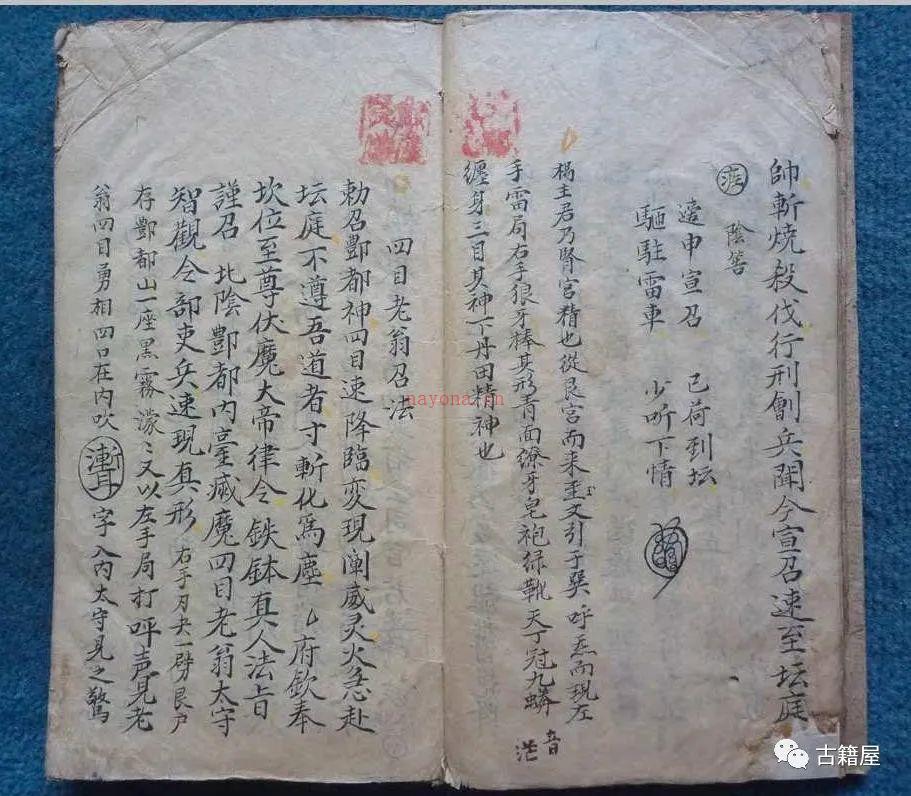 帥斬燒殺伐行刑劊兵聞令宣召速至坛庭
陰筶
遠申宣召 已荷到坛
驅駐雷車 少听下情
楊主君乃腎宮精也從艮宮而来至文引于巽呼炁而現左
手雷局右手狼牙棒其形青面繚牙皂袍绿靴天丁冠九蟒
音茫
纏身三目其神下丹田精神也
四目老翁召法
勅召酆都神四目速降臨变現阐威灵火急赴
坛庭不遵吾道者寸斬化爲塵 府欽奉
坎位至尊伏魔大帝律令鉄鉢真人法旨
謹召 北陰酆都内臺瘋魔四目老翁太守
智觀令部吏兵速現真形 右手刀夬一劈艮户
存酆都山一座黑霧濛々又以左手局打呼声見老
翁四目勇相四口在内吹聻字入内太守見之驚
nayona.cn
古籍屋